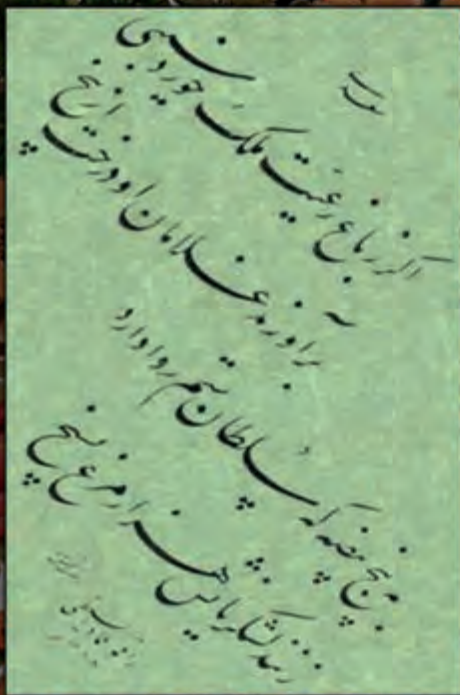 اگر ز باغ رعیت ملک خورد سیبی
برآورند غلامان او درخت از بیخ
به پنج بیضه که سلطان ستم روا دارد
زنند لشکریانش هزار مرغ بسیخ